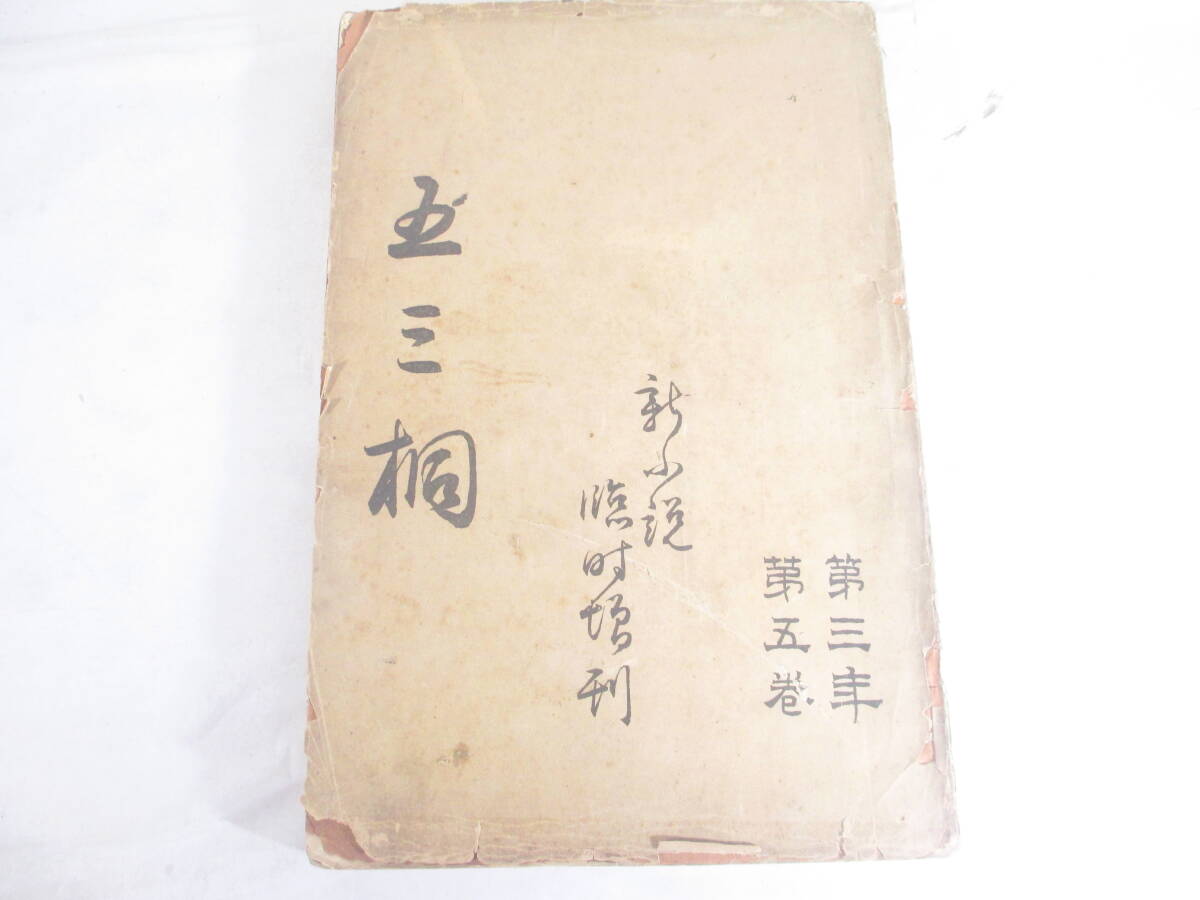 第三年
第五巻
新小説
臨时増刊
五三桐